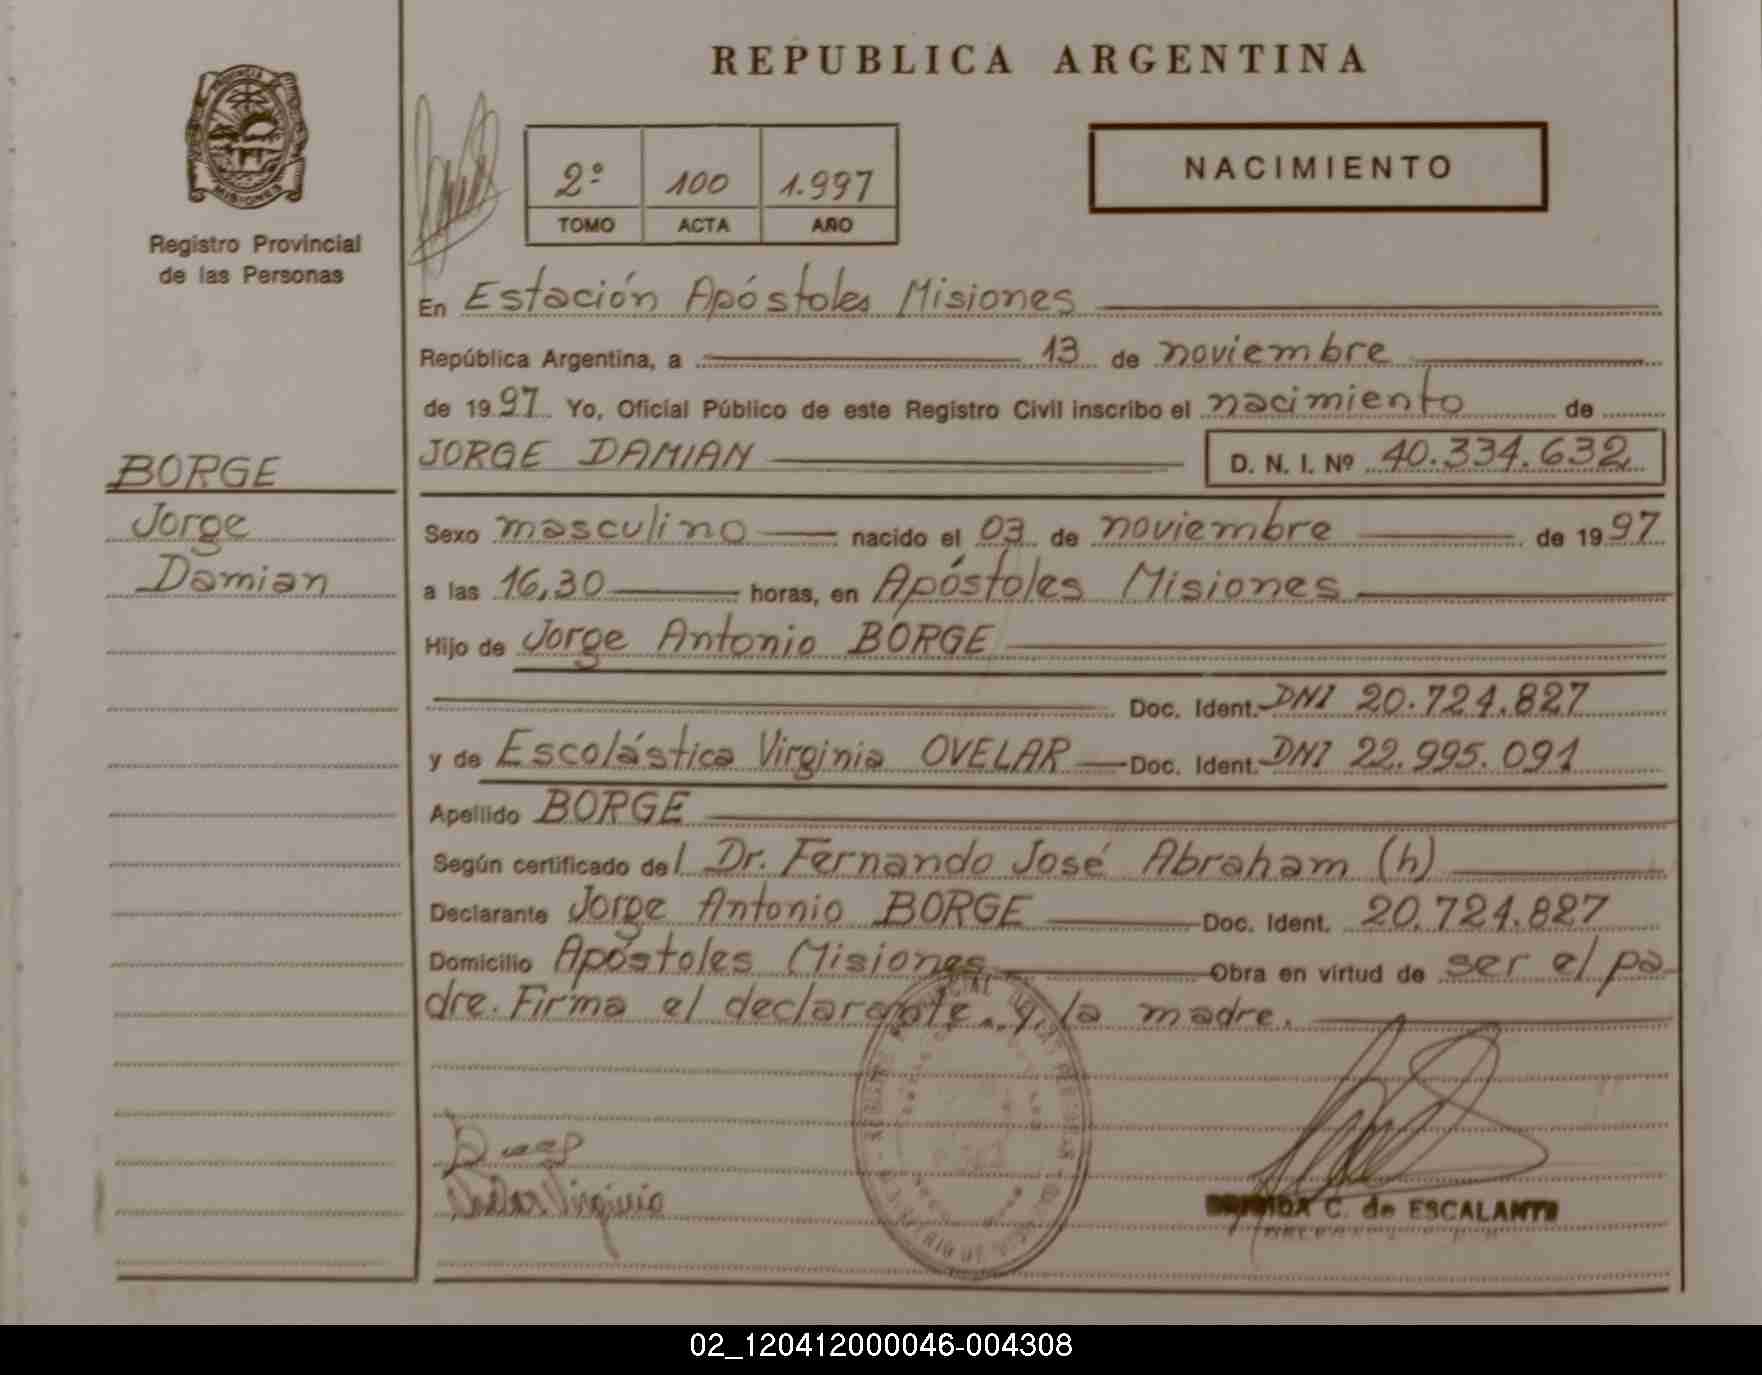 REPUBLICA ARGENTINA
PROVINCIA
MISIONES
Registro Provincial
de las Personas
2º 100 1.997
TOMO ACTA AÑO
NACIMIENTO
En Estación Apóstoles Misiones
República Argentina, a 13 de noviembre
de 1997 Yo, Oficial Público de este Registro Civil inscribo el nacimiento de
JORGE DAMIAN D. N. I. Nº 40.334.632
BORGE
Jorge
Damian
Sexo masculino nacido el 03 de noviembre de 1997
a las 16,30 horas, en Apóstoles Misiones
Hijo de Jorge Antonio BORGE
Doc. Ident. DNI 20.724.827
y de Escolástica Virginia OVELAR Doc. Ident. DNI 22.995.091
Apellido BORGE
Según certificado del Dr. Fernando José Abraham (h)
Declarante Jorge Antonio BORGE Doc. Ident. 20.724.827
Domicilio Apóstoles Misiones Obra en virtud de ser el pa
dre. Firma el declarante y la madre.
Virginia
C. de ESCALANTE
02_120412000046-004308